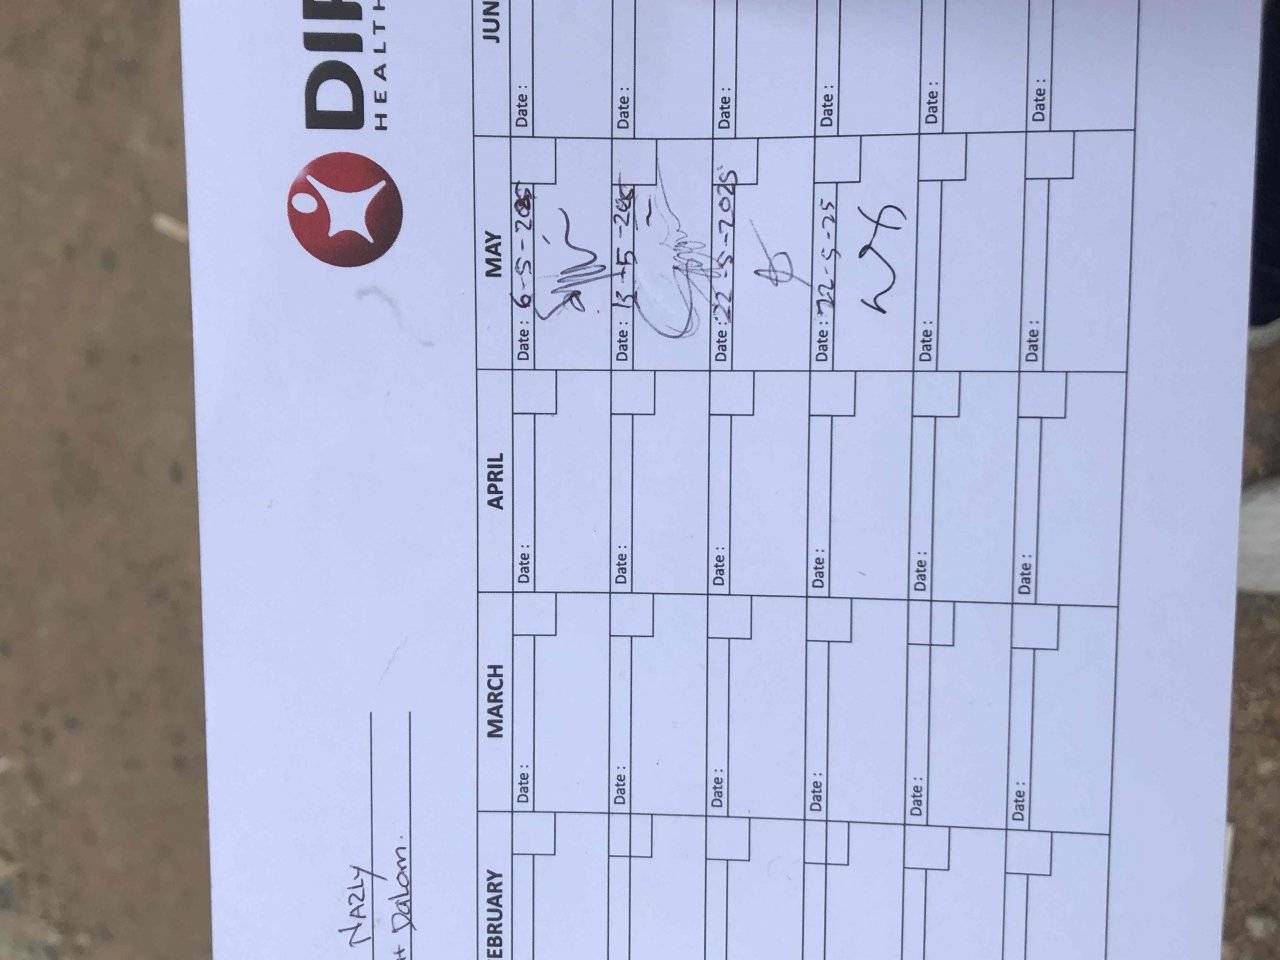 DIR
HEALTH
NAZLY
Dalom.
EBRUARY
MARCH
APRIL
MAY
JUN
Date :
Date :
Date : 6-5-2025
Date :
Date :
Date :
Date : 13-5-2025
Date :
Date :
Date :
Date : 22-5-2025
Date :
Date :
Date :
Date : 22-5-25
Date :
Date :
Date :
Date :
Date :
Date :
Date :
Date :
Date :